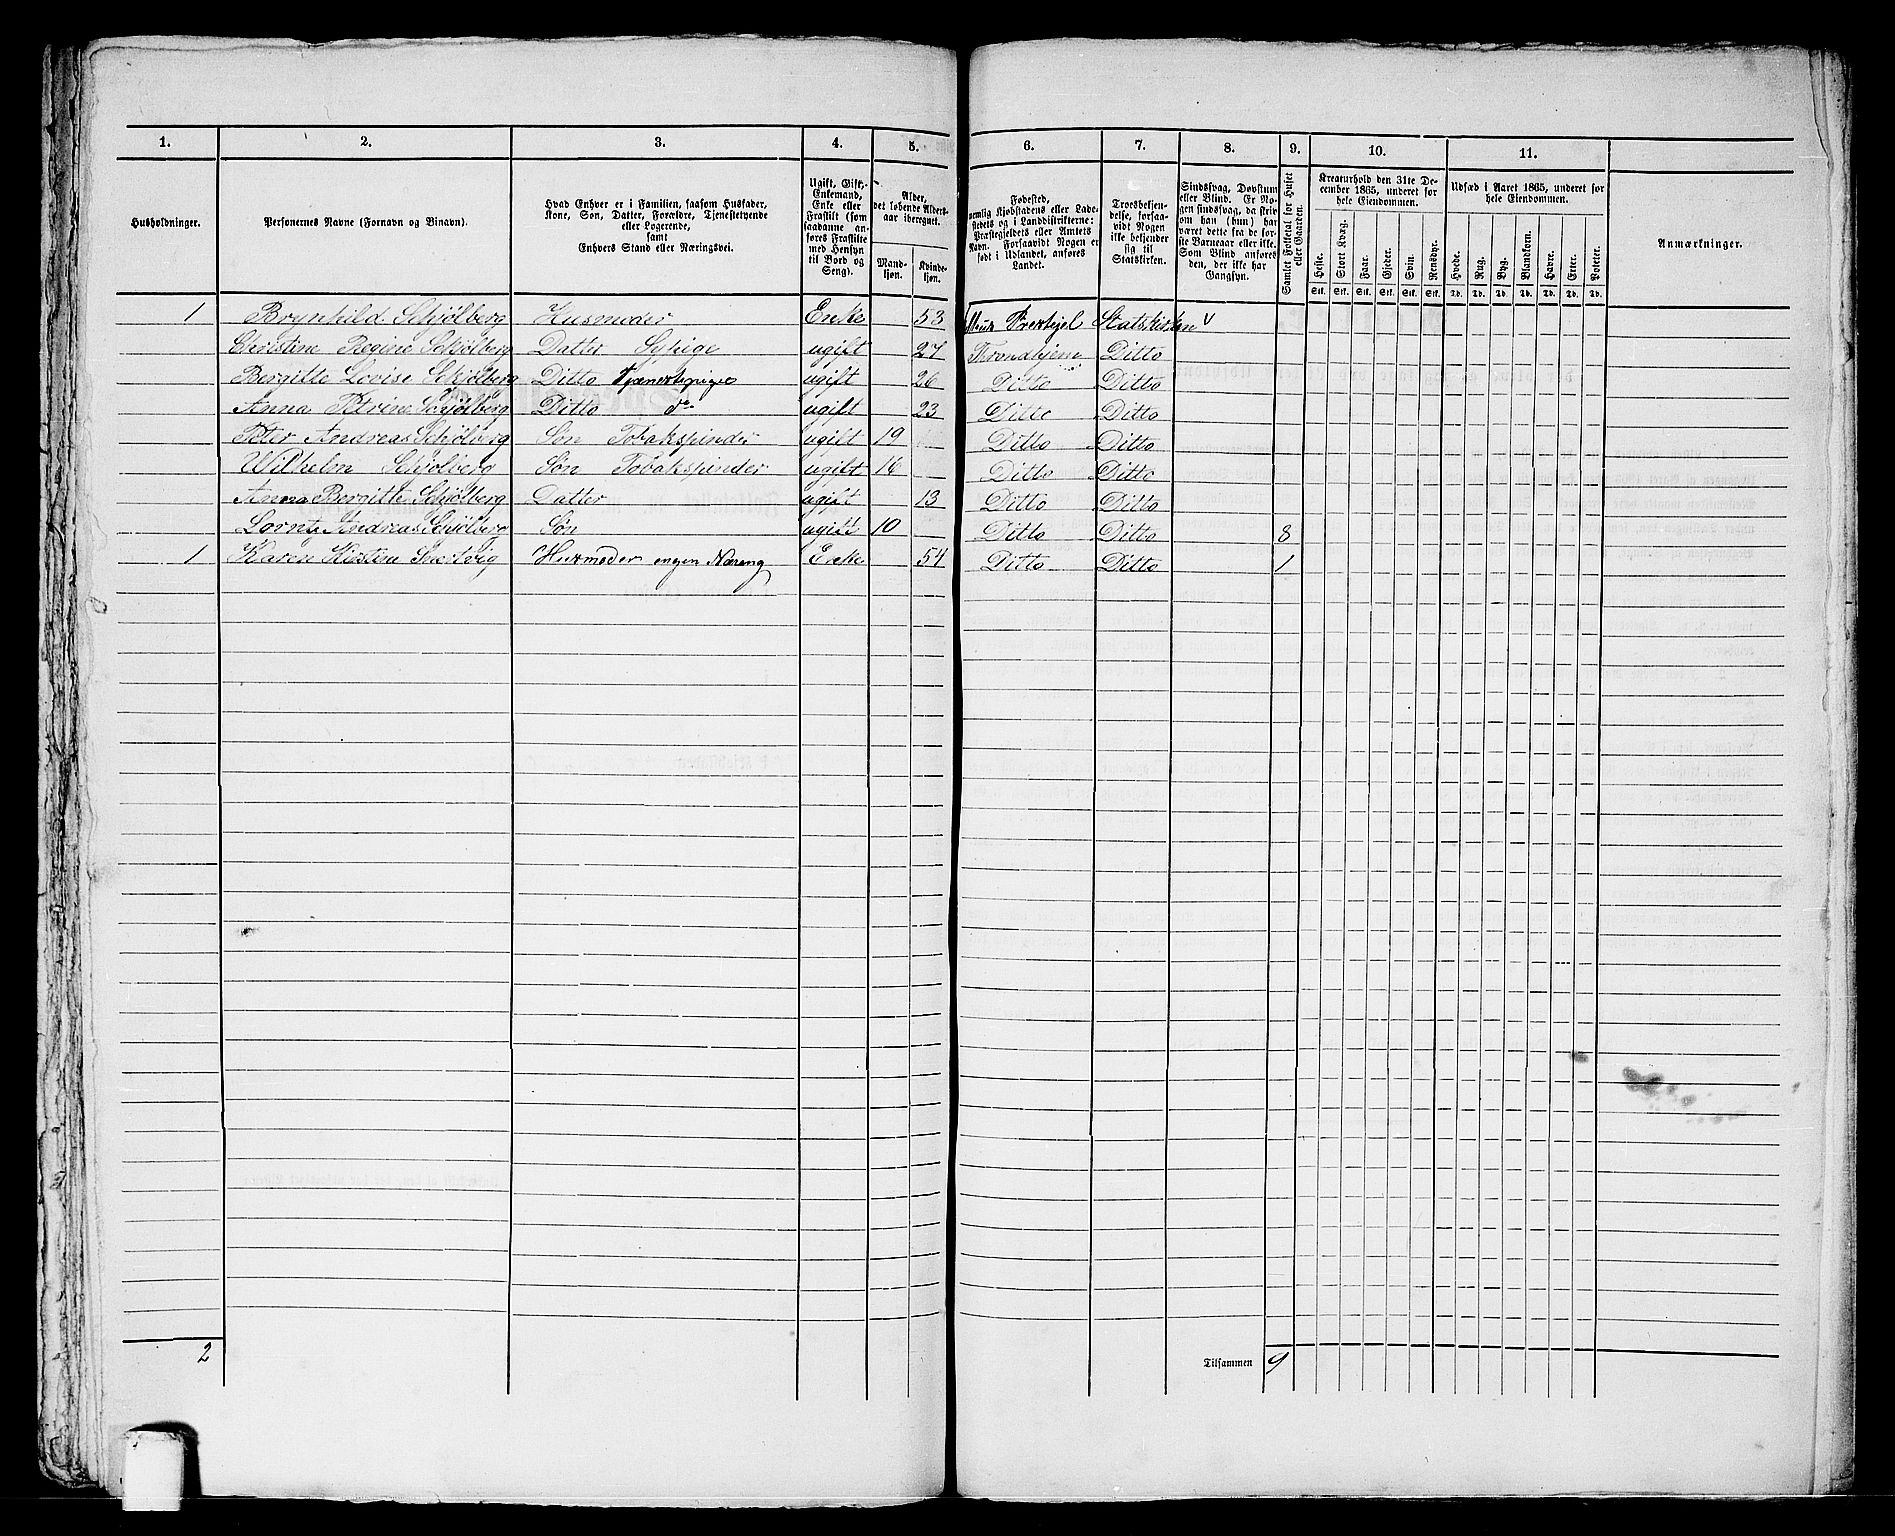 1. 2. 3. 4. 5. 6. 7. 8. 9. 10. 11.
Husholdninger.
Personernes Navne (Fornavn og Binavn).
Hvad Enhver er i Familien, saasom Husfader,
Kone, Søn, Datter, Forældre, Tjenestetyende
eller Logerende,
samt
Enhvers Stand eller Næringsvei.
Ugift, Gift,
Enkemand,
Enke eller
Fraskilt (som
saadanne an-
føres Fraskilte
med Hensyn
til Bord og
Seng).
Alder,
det løbende Alders-
aar iberegnet.
Mand-
kjøn.
Kvinde-
kjøn.
Fødested,
nemlig Kjøbstadens eller Lade-
stedets og i Landdistrikterne:
Præstegjeldets eller Amtets
Navn. Forsaavidt Nogen er
født i Udlandet, anføres
Landet.
Troesbekjen-
delse, forsaa-
vidt Nogen
ikke bekjender
sig til
Statskirken.
Sindssvag, Døvstum
eller Blind. Er No-
gen sindssvag, da skriv
om han (hun) har
været dette fra de før-
ste Barneaar eller ikke.
Som Blind anføres
den, der ikke har
Gangsyn.
Samlet Folketal for Huset
eller Gaarden.
Kreaturhold den 31te De-
cember 1865, underet for
hele Eiendommen.
Heste. Stort Kvæg. Faar. Gjeder. Svin. Rensdyr.
Stk. Stk. Stk. Stk. Stk. Stk.
Udsæd i Aaret 1865, underet for
hele Eiendommen.
Hvede. Rug. Byg. Blandkorn. Havre. Erter. Poteter.
Td. Td. Td. Td. Td. Td. Td.
Anmærkninger.
1 Brynhild Schjølberg Husmoder Enke 53 Statskirken V
Christine Regine Schjølberg Datter Sypige ugift 27 Trondhjem Ditto
Bergitte Lovise Schjølberg Ditto ugift 26 Ditto Ditto
Anna Petrine Schjølberg Ditto do ugift 23 Ditto Ditto
Peter Andreas Schjølberg Søn Tobakspinder ugift 19 Ditto Ditto
Wilhelm Schjølberg Søn Tobakspinder ugift 16 Ditto Ditto
Anna Bergitte Schjølberg Datter ugift 13 Ditto Ditto
Andreas Schjølberg Søn ugift 10 Ditto Ditto 8
1 Karen Kirstine Husmoder ingen Næreng Enke 54 Ditto Ditto 1
2 Tilsammen 9